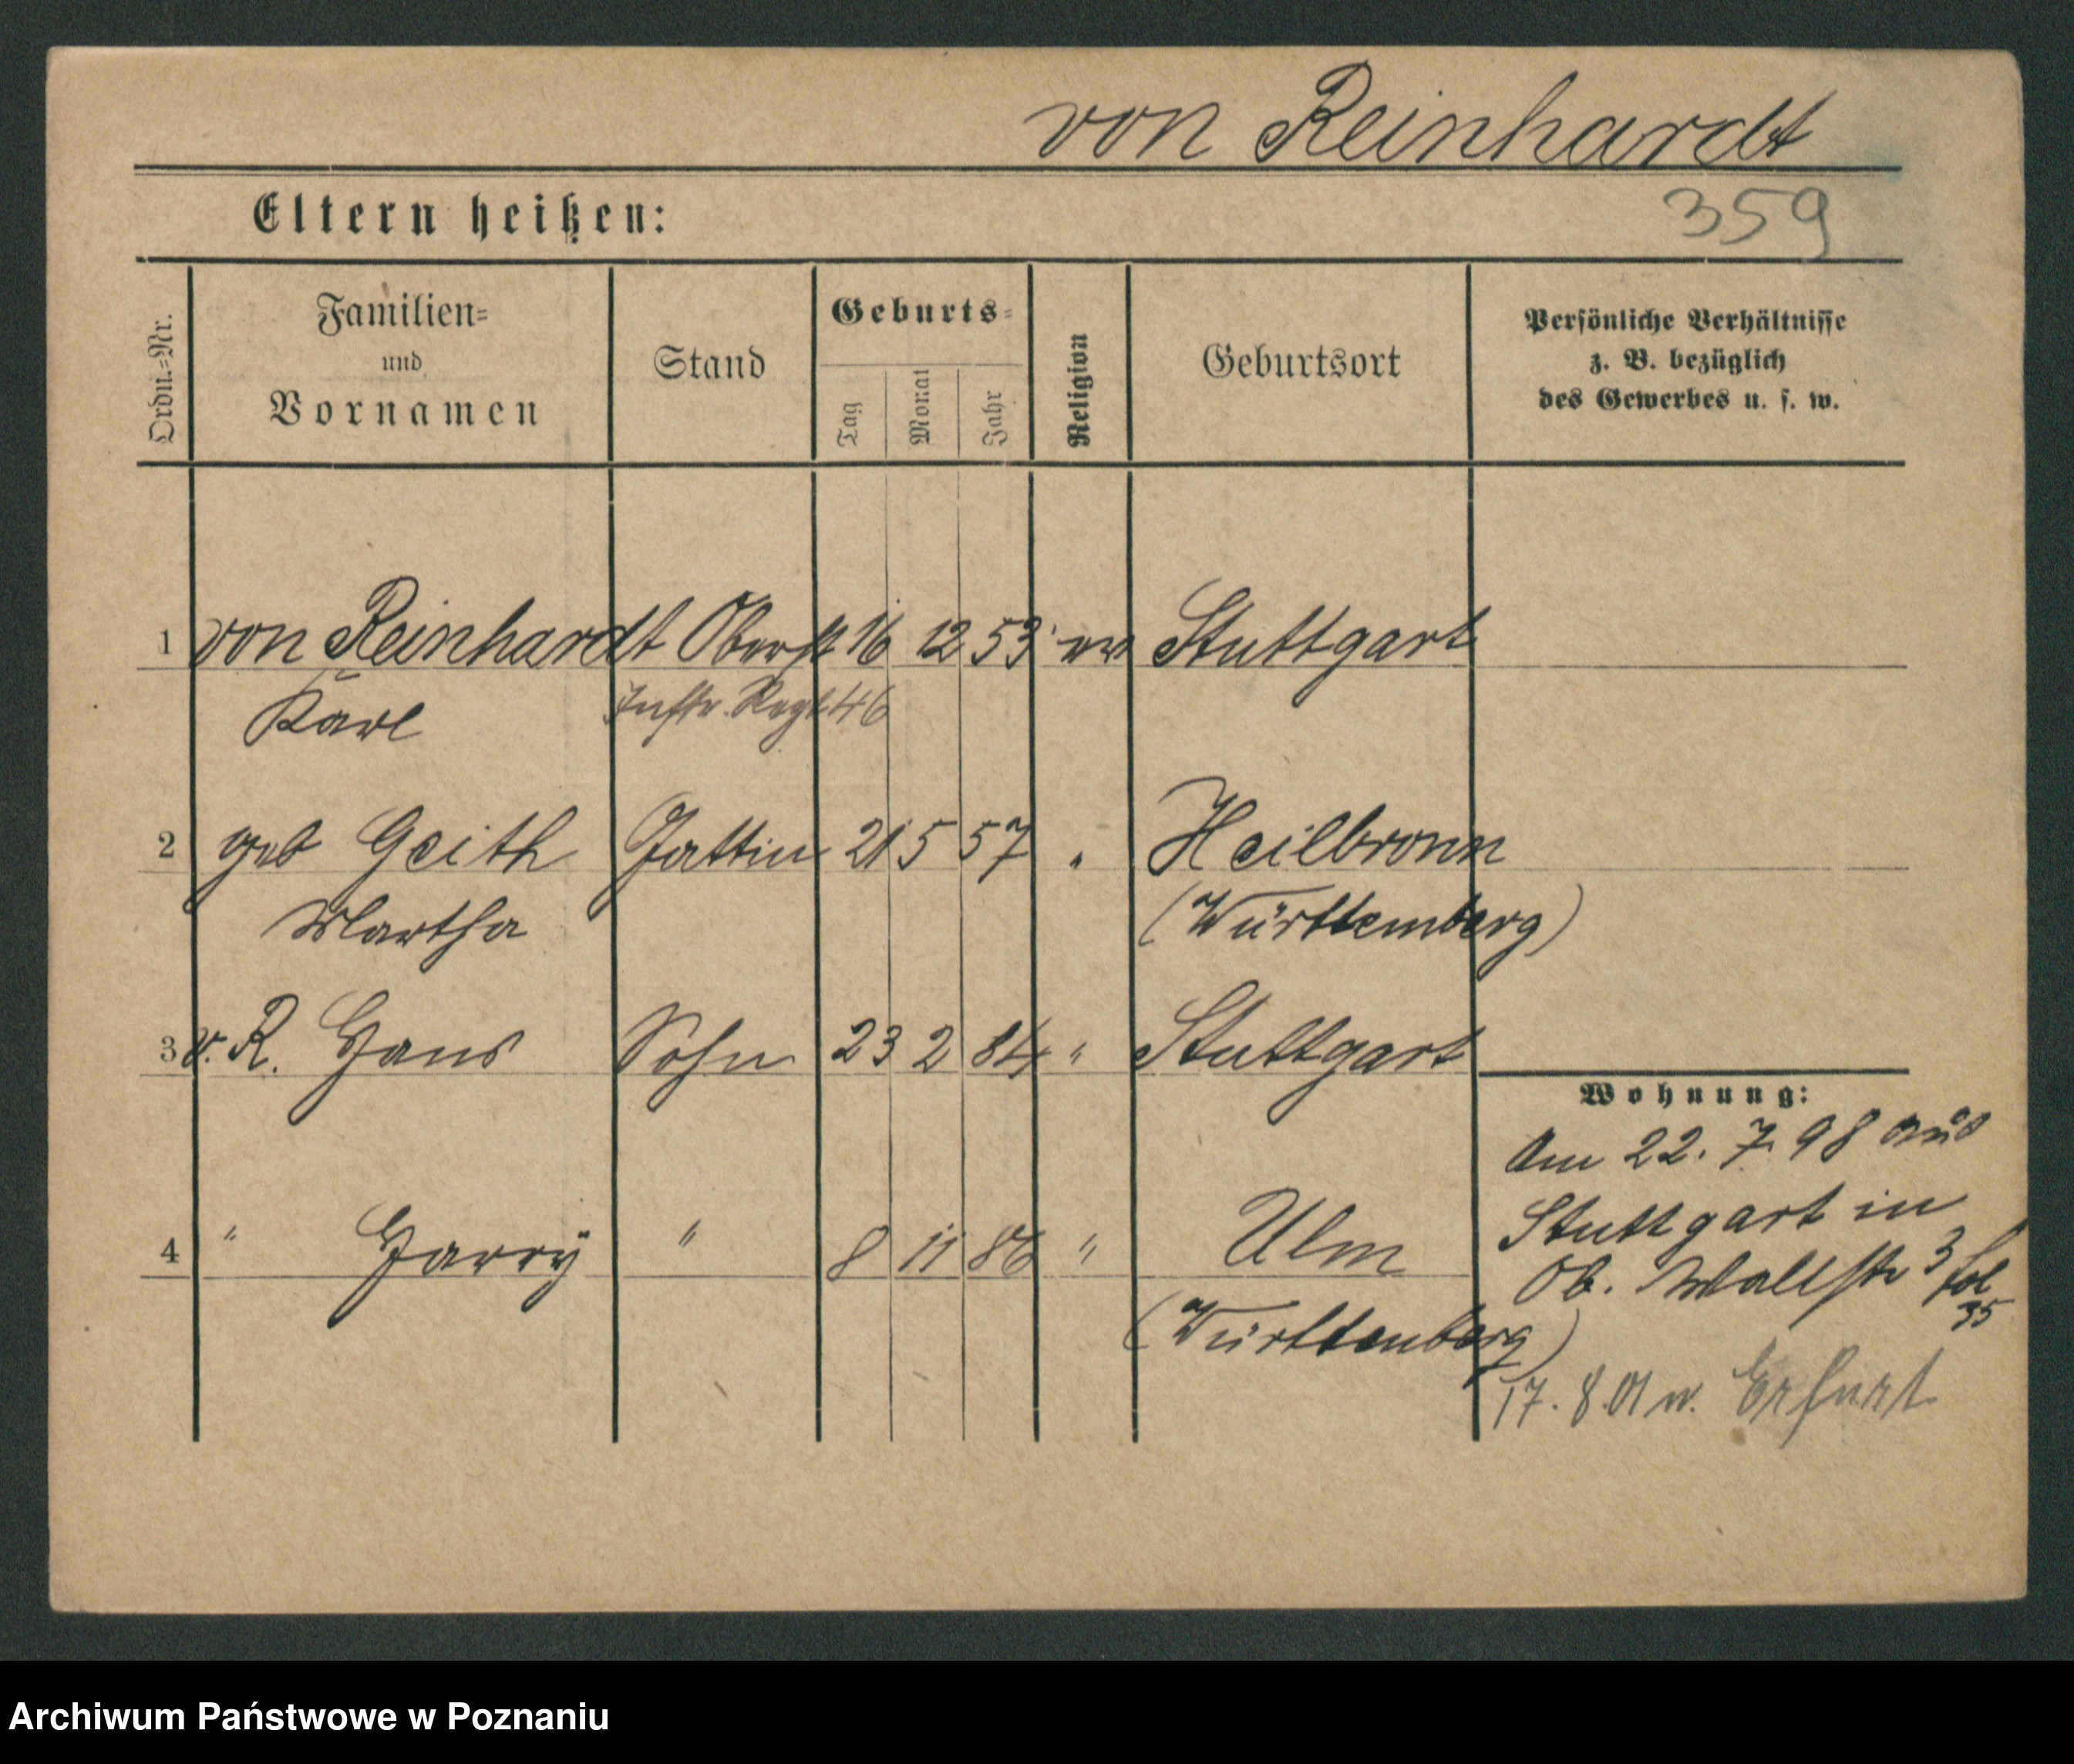 von Reinhardt
Eltern heißen:
359
Ordn.=Nr.
Familien=
und
Vornamen
Stand
Geburts=
Tag
Monat
Jahr
Religion
Geburtsort
Persönliche Verhältnisse
z. B. bezüglich
des Gewerbes u. s. w.
1 von Reinhardt Oberst 16 12 53 ev Stuttgart
Karl Inftr. Regt 46
2 geb Geith Gattin 21 5 57 " Heilbronn
Martha (Württemberg)
3 v. R. Hans Sohn 23 2 84 " Stuttgart
4 " Harry " 8 11 86 " Ulm
(Württemberg)
Wohnung:
Am 22. 7. 98 aus
Stuttgart in
Ob. Wallstr 3 fol
35
17. 8. 01 n. Erfurt
Archiwum Państwowe w Poznaniu